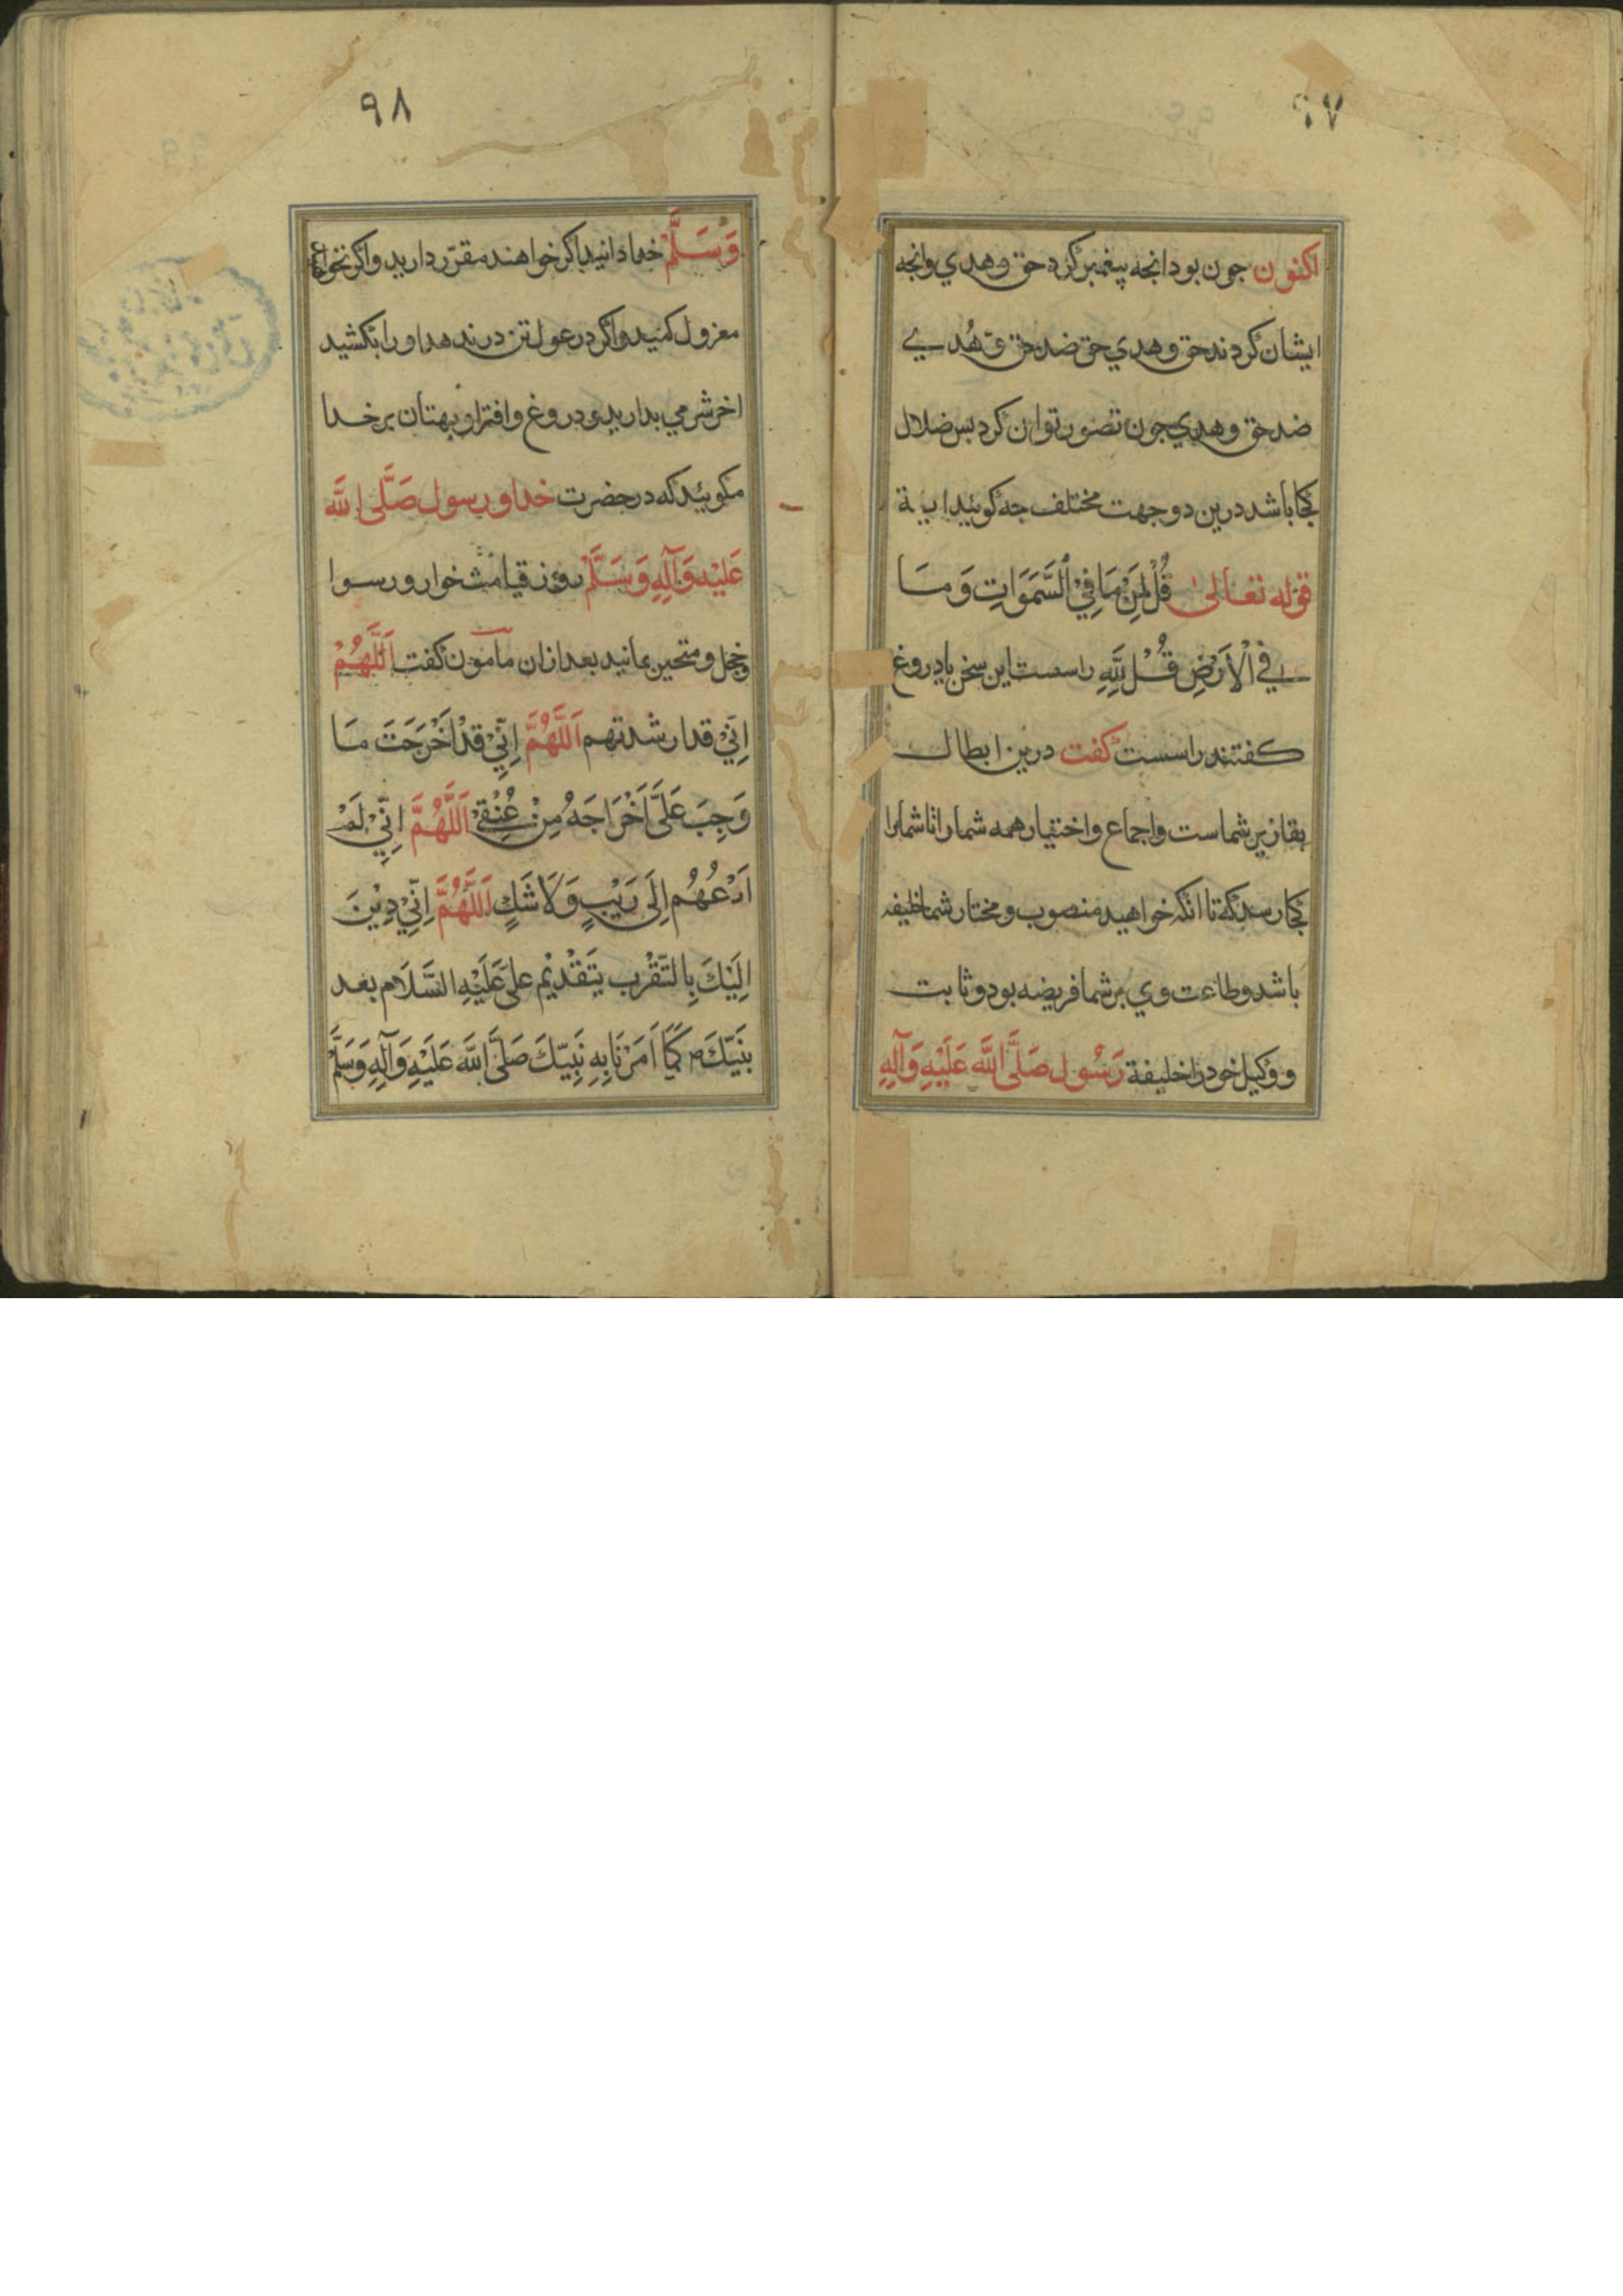 ٩٧
اکنون جون بود انجه پیغمبر کرد حق وهدي وانجه
ایشان کردند حق وهدي حق ضد حق وهُدے
ضد حق وهدي جون تصور توان کرد بس ضلال
کجا باشد درین دو جهت مختلف جه کوئید
قوله تعالیٰ قُلْ لِمَنْ مَا فِيْ السَّمَوَاتِ وَمَا
فِي الْاَرْضِ قُلْ لِلّٰهِ راست این سخن یا دروغ
کفتند راست کفت درین ابطال
شماست واجماع واختیار همه شمارا تا شمارا
کجا رسد که تا انکه خواهید منصوب ومختار شما خلیفه
باشد وطاعت وي بر شما فریضه بود وثابت
ووکیل خود را خلیفة رَسُول صَلَّى اللّٰهَ عَلَيْهِ وَآلِهِ
٩٨
وَسَلَّمْ خدا دانید اکر خواهند مقرّر دارید واکر نخواهید
معزول کنید واکر در عول تن در ندهد او را بکشید
اخر شرمي بدارید ودروغ وافترا وبهتان بر خدا
مکوئید که در حضرت خدا ورسول صَلَّى اللّٰه
عَلَيْه وَآلِهِ وَسَلَّمْ روز قیامت خوار ورسوا
وخجل ومتحیر بمانید بعد ازان مامون کفت اَللّٰهُمْ
اِنِّيْ قد ارشدتهم اَللّٰهُمَّ اِنِّيْ قَدْ اَخْرَجَتَ مَا
وَجِبَ عَلَيَّ اَخْرَاجَهُ مِنْ عُنْقِيْ اَللّٰهُمَّ اِنِّيْ لَمْ
اَدْعُهُم اِلَى رَيْبٍ وَلَا شَكٍ اَللّٰهُمَّ اِنِّيْ دِيْنَ
اِلَيْكَ بِالتَّقْرب بِتَقْدِيْم علي عَلَيْهِ السَّلَام بعد
بنَبِيّكَ كَمَا اَمَرْنَا بِهِ نَبِيّكَ صَلَّى اللّٰه عَلَيْهِ وَآلِهِ وَسَلَّمْ